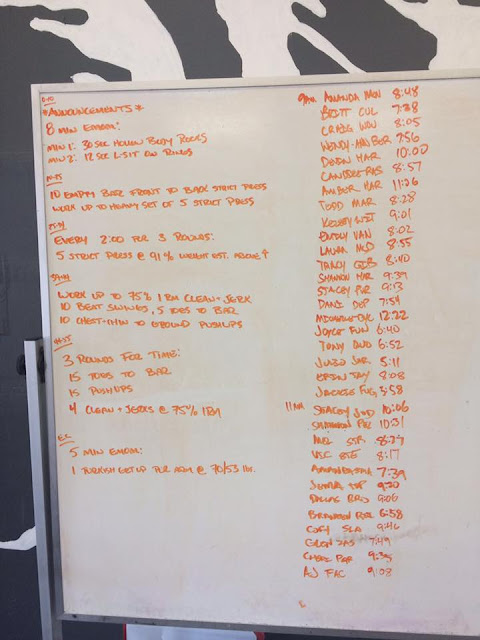 *ANNOUNCEMENTS*
8 MIN EMOM:
MIN 1: 30 SEC HOLLOW BODY ROCKS
MIN 2: 12 SEC L-SIT ON RINGS
10 EMPTY BAR FRONT TO BACK STRICT PRESS
WORK UP TO HEAVY SET OF 5 STRICT PRESS
EVERY 2:00 FOR 3 ROUNDS:
5 STRICT PRESS @ 91% WEIGHT EST. ABOVE ↑
WORK UP TO 75% 1RM CLEAN + JERK
10 BEAT SWINGS, 5 TOES TO BAR
10 CHEST-THIN TO GROUND PUSHUPS
3 ROUNDS FOR TIME:
15 TOES TO BAR
15 PUSHUPS
4 CLEAN + JERKS @ 75% 1RM
E.C.
5 MIN EMOM:
1 TURKISH GETUP PER ARM @ 70/53 lbs.
9AM AMANDA MON 8:48
BRITT CUL 7:38
CRAIG WON 8:05
WENDY-AMBER 7:56
DEVIN HAR 10:00
CANDICE RAS 8:57
AMBER HAR 11:26
TODD MAR 8:28
KELSEY WIT 9:01
EMILY VAN 8:02
LAURA MCD 8:55
TRACY GIB 8:40
SHANNON MOR 9:39
STACEY POR 9:13
DANI DEP 7:59
12:22
JOYCE FUN 6:40
TONY 6:52
JUNBO 5:11
8:08
JACKIE FUG 3:58
11AM STACEY JUD 10:06
SHANNON 10:31
MEL STR 8:29
8:17
AMANDA 7:39
9:20
DALLAS BRO 9:06
BRANDON 6:58
CORY SLA 9:46
GLEN 7:49
9:35
AJ FAC 9:08